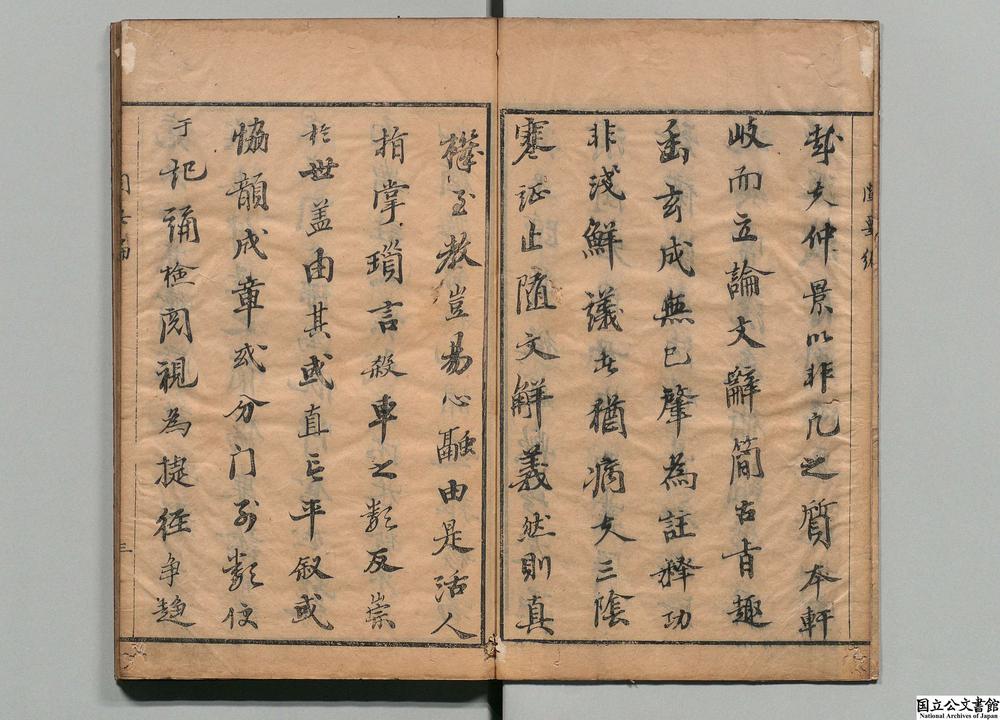 哉夫仲景以非凡之質本軒
岐而立論文辭簡古旨趣
玄成無已肇為註釋功
非淺鮮議者猶病夫三陰
寒證止隨文解義然則真
至教豈易心融由是活人
指掌瑣言殺車之類反崇
於世盖由其或直言平叙或
恊韻成章或分门别類便
于记誦檢閱視為捷徑争趨
三
国立公文書館
National Archives of Japan